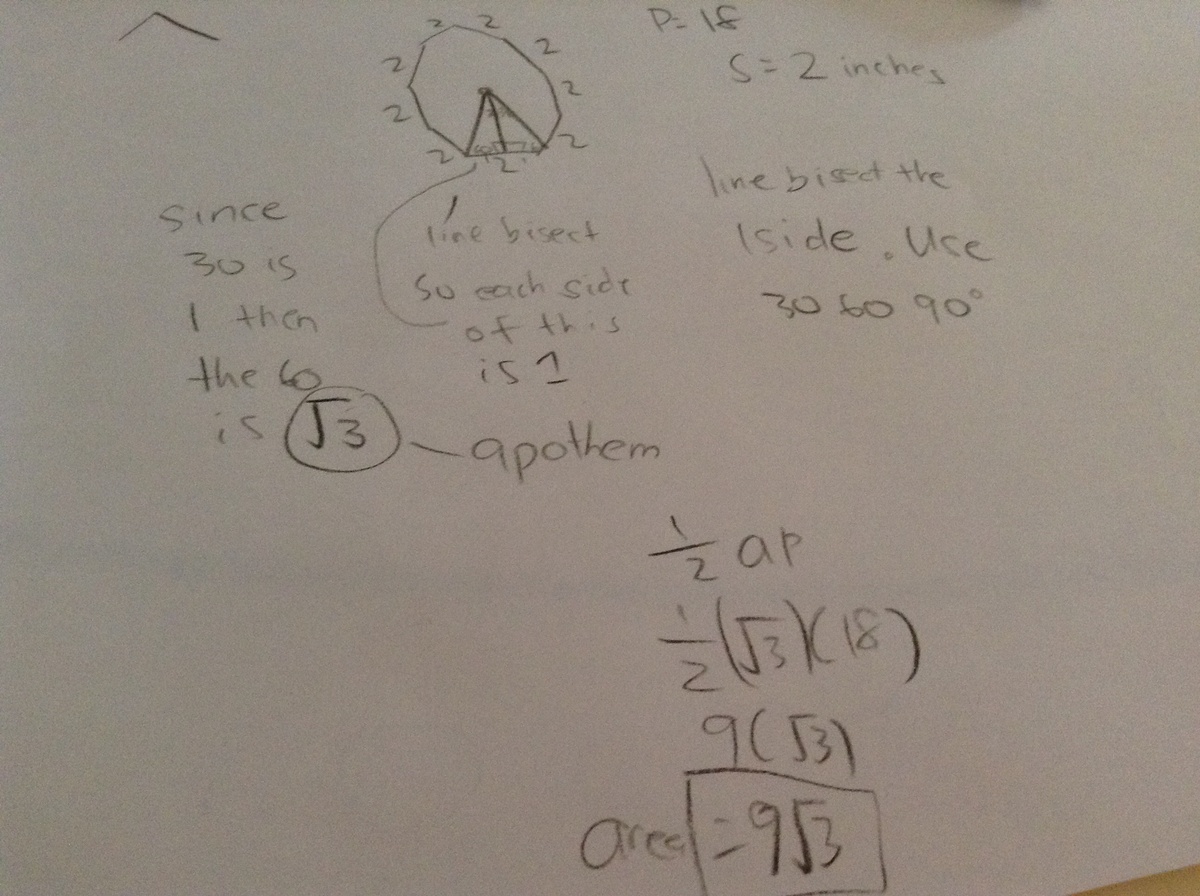 2 2
2
2
2
2
2
2
2
P= 18
S = 2 inches
line bisect the
1side. Use
30 60 90°
line bisect
so each side
of this
is 1
since
30 is
1 then
the 60
is √3
apothem
1/2 ap
1/2(√3)(18)
9(√3)
area = 9√3